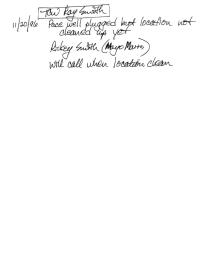 Ray Smith
11/20/96 Pace well plugged kept location not
cleaned up yet
Rickey Smith (Mayo Marrs)
will call when location clean